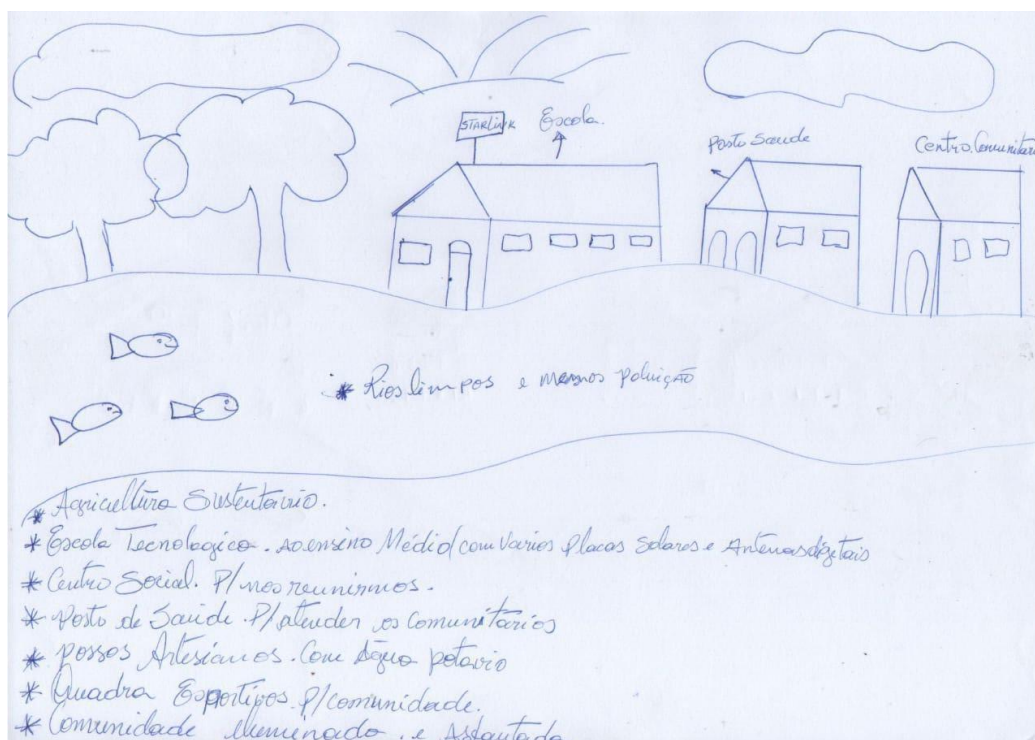 STARLINK
Escola.
Posto Saude
Centro Comunitari
* Rios limpos e menos poluição
* Agricultura Sustentavio.
* Escola Tecnologico. ao ensino Médio/com varios Placas Solares e Antenas digitais
* Centro Social. P/ nos reunirmos.
* Posto de Saúde. P/ atender os Comunitários
* Possos Artesianos. Com água potavio
* Quadra Esportivos. P/ comunidade.
* Comunidade eluminado. e Asfautado